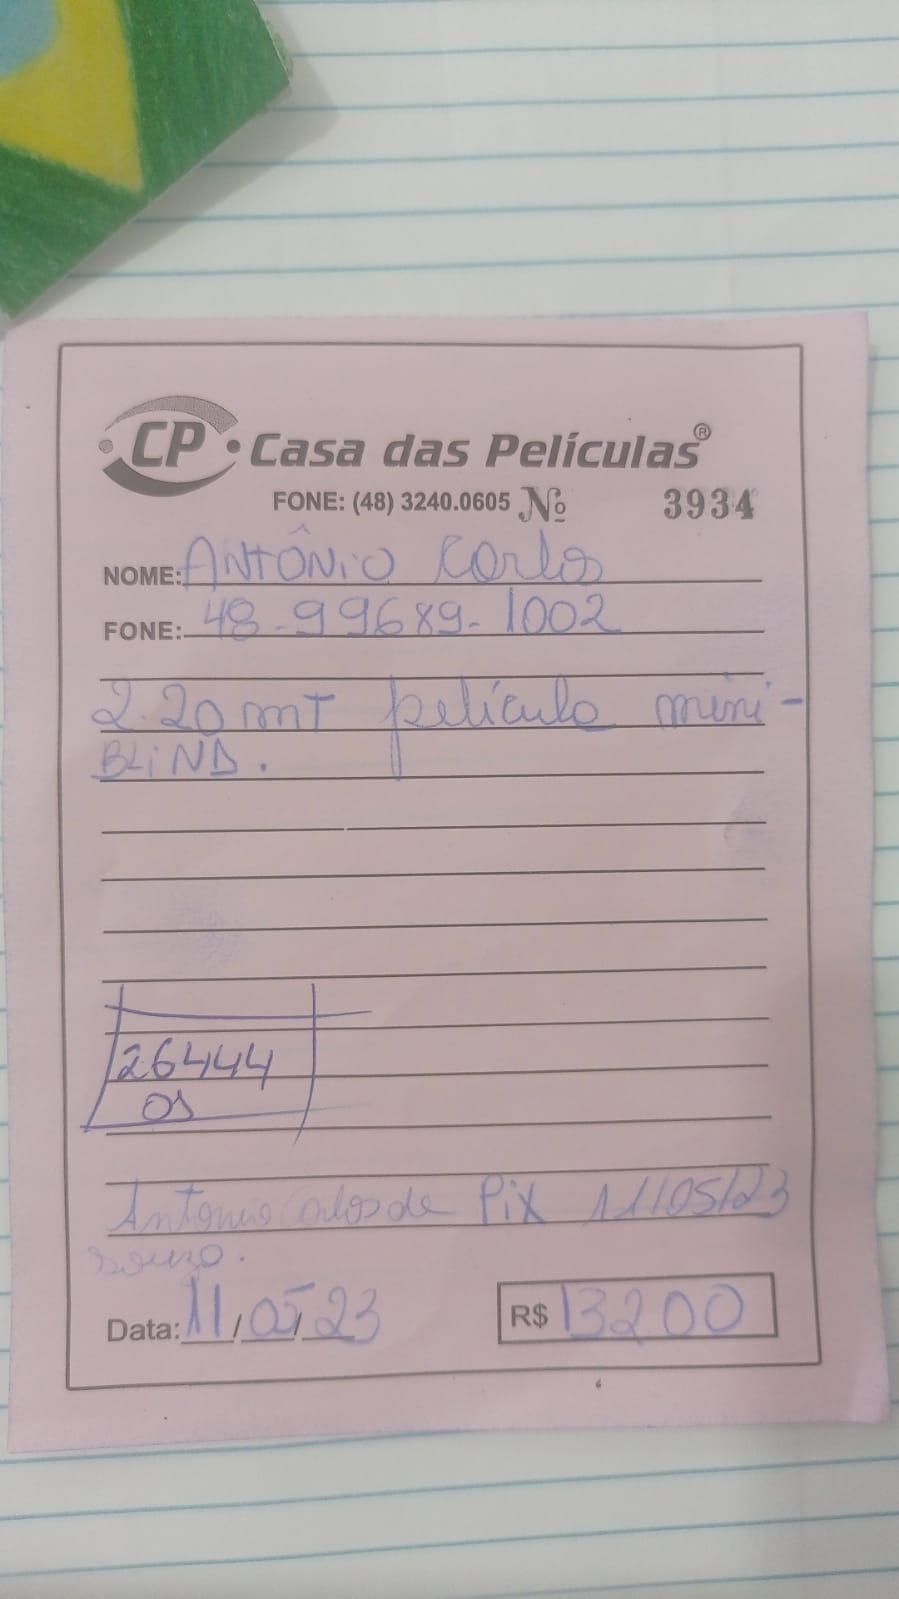 CP Casa das Películas®
FONE: (48) 3240.0605 Nº 3934
NOME: ANTÔNIO Carlos
FONE: 48-99689-1002
2.20 mT película mini-
BLIND.
26444
OS
Antonio Carlos de Pix 11/05/23
souza.
Data: 11/05/23 R$ 13200